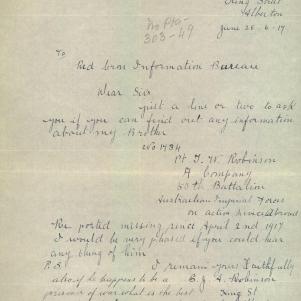 King Street
Alberton
June 28-6-17
No Pte-
303-49
To
Red Cross Information Bureau
Dear Sir
just a line or two to ask
you if you can find out any information
about my Brother
No 1734
Pt J. W. Robinson
A Company
50th Battalion
Australian Imperial Forces
on active service Abroad
posted missing since April 2nd 1917
I would be very pleased if you could hear
any thing of him
P.S. I remain yours Faithfully
also if he happens to be a E. J. A. Robinson
prisoner of war what is the best King St